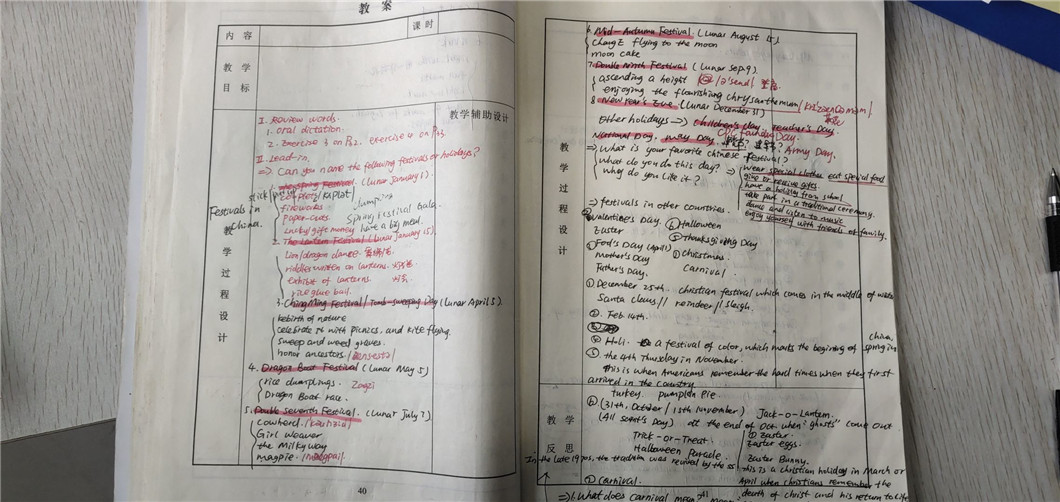 教案
内容
课时
教学目标
教学辅助设计
I. Review words.
1. oral dictation.
2. Exercise 3 on P32. exercise 4 on P33.
II. Lead-in.
=> Can you name the following festivals or holidays?
(Lunar January 1).
stick/
couplets/
fireworks
dumplings
paper-cuts
Spring Festival Gala.
lucky/gift money
have a big meal.
Festivals in China.
2. The Lantern Festival (Lunar January 15).
Lion/dragon dance.
riddles written on lanterns.
exhibit of lanterns
rice glue ball.
3. ChingMing Festival / Tomb-sweeping Day (Lunar April 5).
rebirth of nature
celebrate it with picnics, and kite flying.
sweep and weed graves.
honor ancestors
4. Dragon Boat Festival (Lunar May 5)
rice dumplings. Zongzi
Dragon Boat race.
5. Double seventh Festival. (Lunar July 7)
Cowherd.
Girl weaver
the Milky way
magpie.
教学过程设计
40
6. Mid-Autumn Festival. (Lunar August 15)
Chang E flying to the moon
moon cake
7. Double Ninth Festival (Lunar Sep. 9)
ascending a height
enjoying the flourishing chrysanthemum
8. New Year's Eve (Lunar December 31)
Other holidays => Children's day, teacher's Day.
CPC Founding Day.
National Day, may Day.
Army Day.
=> What is your favorite chinese festival?
what do you do this day? =>
why do you like it?
wear special clothes eat special food
give or receive gifts
have a holiday from school
take part in a traditional ceremony.
dance and listen to music
enjoy yourself with friends of family.
=> festivals in other countries.
Valentines Day.
⑥ Halloween
Easter
⑤ Thanksgiving Day
Fool's Day (April 1)
① Christmas
Mother's Day
Carnival.
Father's Day.
① December 25th. christian festival which comes in the middle of
Santa claus // reindeer // sleigh.
②. Feb. 14th.
④ Holi. a festival of color, which marks the beginning of spring in
china,
⑤ the 4th Thursday in November.
this is when Americans remember the hard times when they first
arrived in the country
turkey. pumpkin pie.
⑥ (31th, October / 1sth november) Jack-o-Lantern.
(All saint's Day) at the end of Oct. when "ghosts" come out
Trick-or-Treat.
Halloween Parade.
Easter.
Easter eggs.
Easter Bunny.
In the late 1970s, the tradition was revived by the
this is a christian holiday in March or
April when christians remember the
death of christ and his return to life
carnival.
=> 1. What does carnival mean
教学过程设计
教学反思